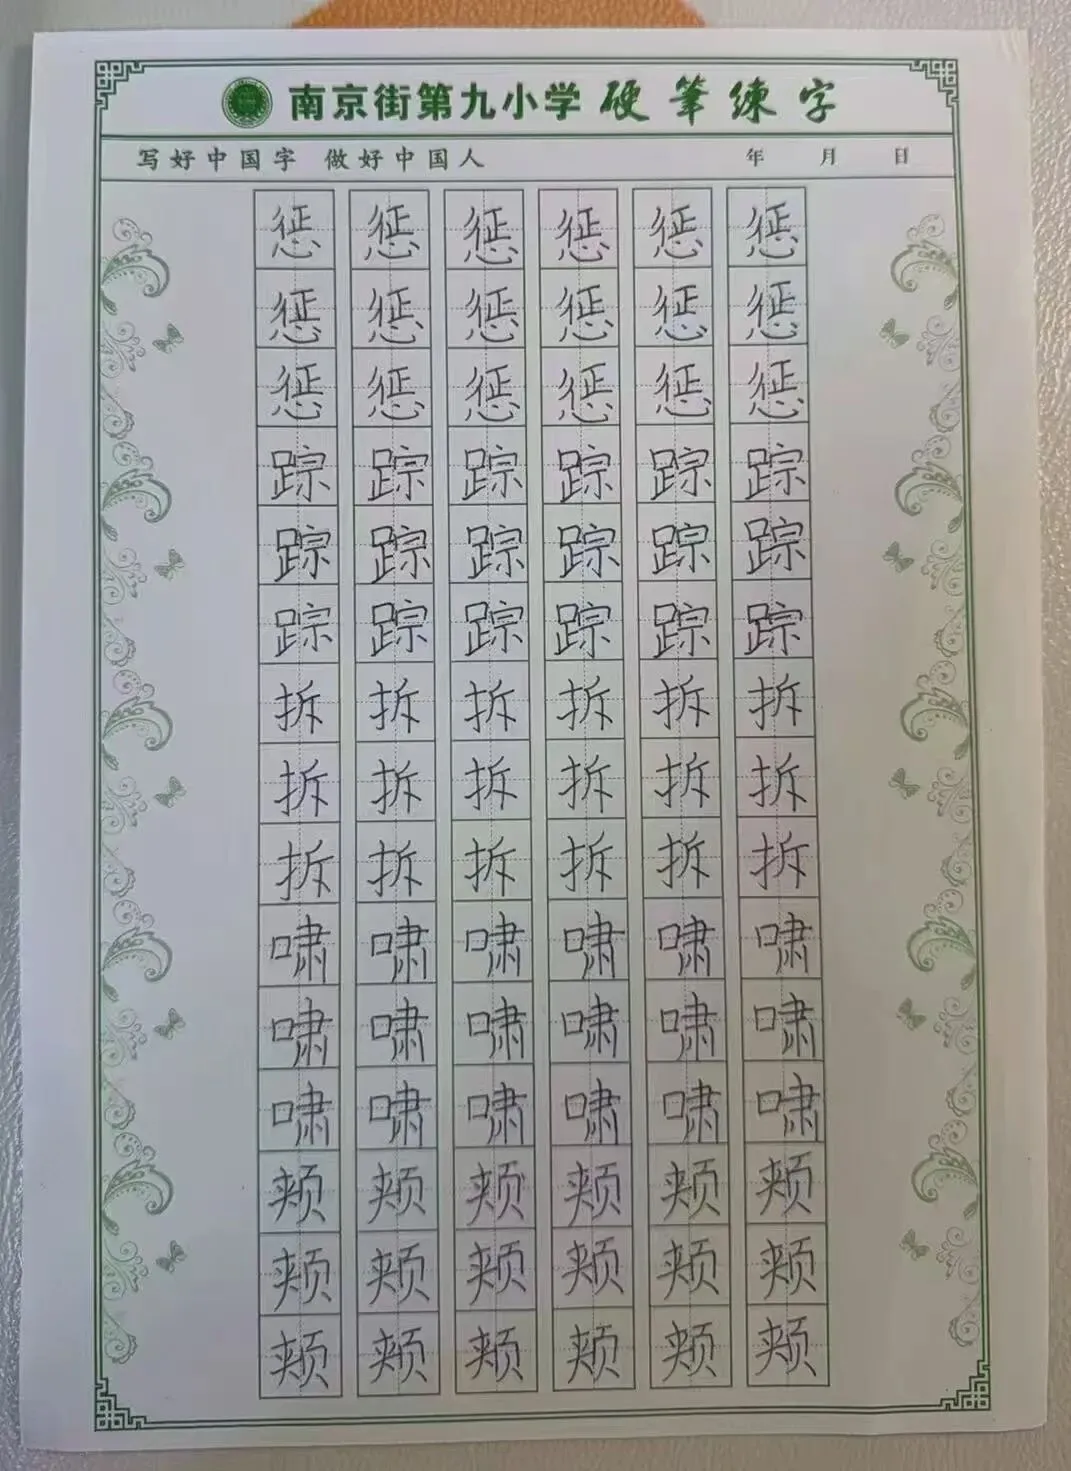 南京街第九小学 硬筆練字
写好中国字 做好中国人 年 月 日
惩 惩 惩 惩 惩 惩
惩 惩 惩 惩 惩 惩
惩 惩 惩 惩 惩 惩
踪 踪 踪 踪 踪 踪
踪 踪 踪 踪 踪 踪
踪 踪 踪 踪 踪 踪
拆 拆 拆 拆 拆 拆
拆 拆 拆 拆 拆 拆
拆 拆 拆 拆 拆 拆
啸 啸 啸 啸 啸 啸
啸 啸 啸 啸 啸 啸
啸 啸 啸 啸 啸 啸
颊 颊 颊 颊 颊 颊
颊 颊 颊 颊 颊 颊
颊 颊 颊 颊 颊 颊